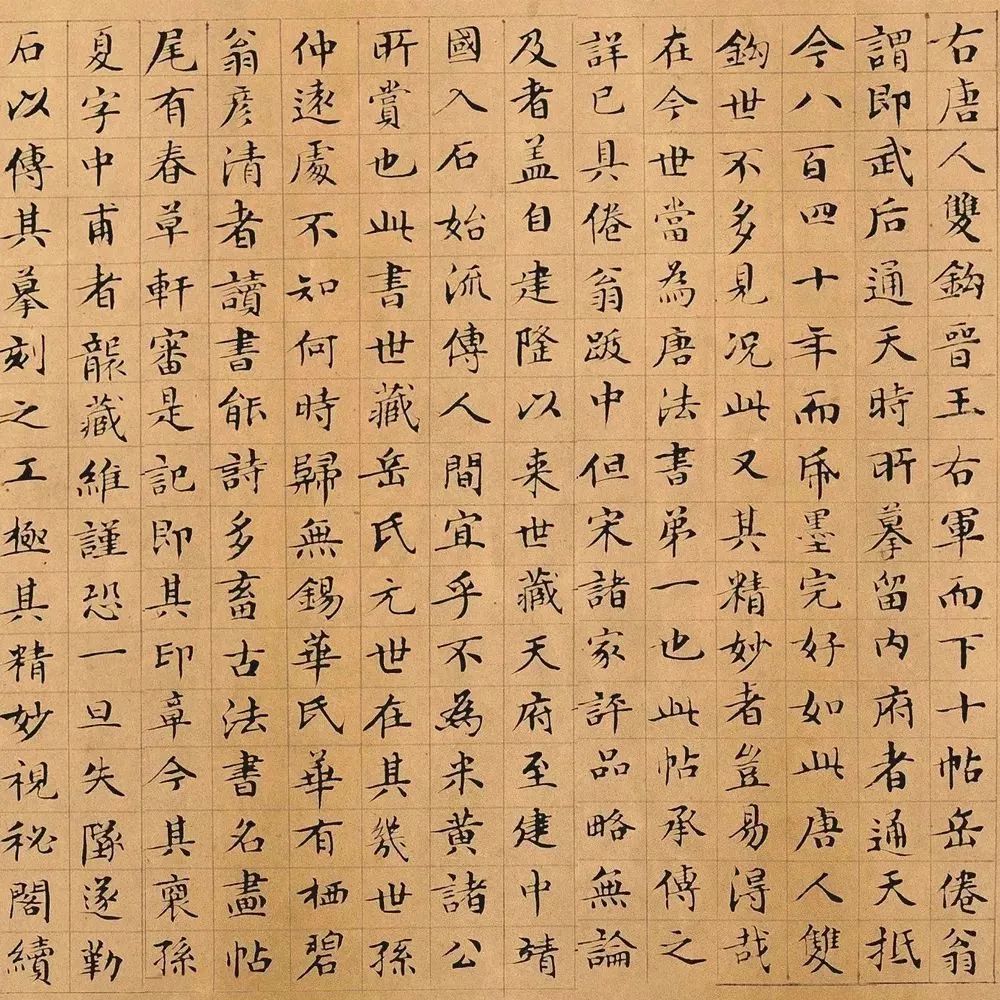 右唐人雙鈎晉王右軍而下十帖岳倦翁
謂即武后通天時所摹留內府者通天抵
今八百四十年而帋墨完好如此唐人雙
鈎世不多見况此又其精妙者豈易得哉
在今世當為唐法書弟一也此帖承傳之
詳已具倦翁跋中但宋諸家評品略無論
及者盖自建隆以来世藏天府至建中靖
國入石始流傳人間宜乎不為米黄諸公
所賞也此書世藏岳氏元世在其幾世孫
仲遠處不知何時歸無錫華氏華有栖碧
翁彦清者讀書能詩多畜古法書名畫帖
尾有春草軒審是記即其印章今其裔孫
夏字中甫者襲藏維謹恐一旦失墜遂勒
石以傳其摹刻之工極其精妙視秘閣續